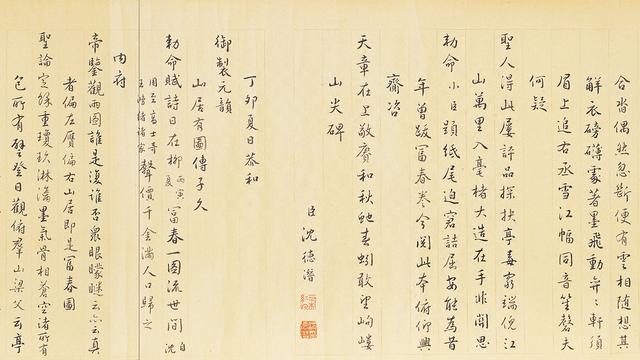 合沓偶然忽斷便有雲相随想其
解衣磅礴處著墨飛動
眉上追右丞雪江幅同音笙磬夫
何疑
聖人得此屢評品探抉亭毒窮端倪江
山萬里入毫楮大造在手非關思
勅命小臣題紙尾迫窘詰屈安能為昔
年曾跋富春卷今閱此本俯仰興
齋咨
天章在上敬賡和秋蛇春蚓敢望岣嶁
山尖碑
臣沈德潛
丁卯夏日恭和
御製元韻
山居有圖傳子久
勅命賦詩日在柳丙寅夏富春一圖流世間自沈
聲價千金滿人口歸之
内府
帝鑒觀兩圖誰是復誰否衆眼矇瞇云六云真
者偏左贋偏右山居即是富春圖
聖論定餘重瓊玖淋漓墨氣骨相蒼空諸所有
包所有登日觀俯群山梁父云亭